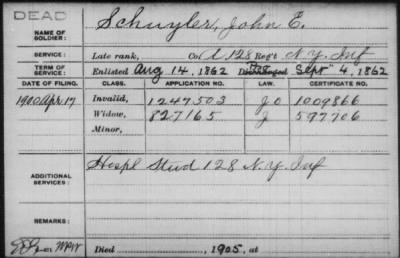 DEAD
NAME OF SOLDIER: Schuyler, John E.
SERVICE: Late rank, Co. I 128 Reg't N.Y. Inf
TERM OF SERVICE: Enlisted Aug 14, 1862 Discharged Sept 4, 1862
DATE OF FILING. CLASS. APPLICATION NO. LAW. CERTIFICATE NO.
1900 Apr. 17 Invalid, 1247503 1009866
Widow, 827165 597706
Minor,
ADDITIONAL SERVICES: Hospl Stwd 128 N.Y. Inf
REMARKS:
Died , 1905, at